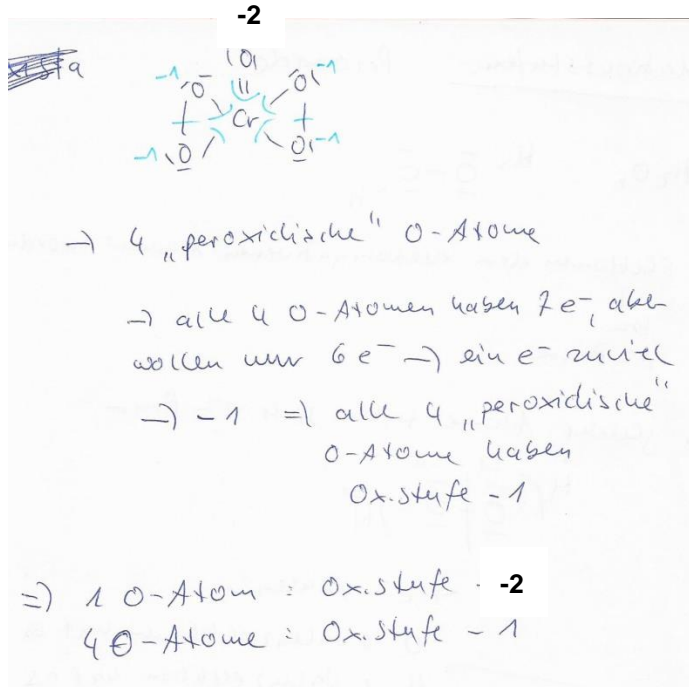 -2
-1 |O| -1
O O
|| Cr
-1 O O -1
→ 4 „peroxidische" O-Atome
→ alle 4 O-Atomen haben 7e⁻, aber
wollen nur 6e⁻ → ein e⁻ zuviel
→ -1 ⇒ alle 4 „peroxidische"
O-Atome haben
Ox.stufe -1
⇒ 1 O-Atom : Ox.stufe -2
4 O-Atome : Ox.stufe -1